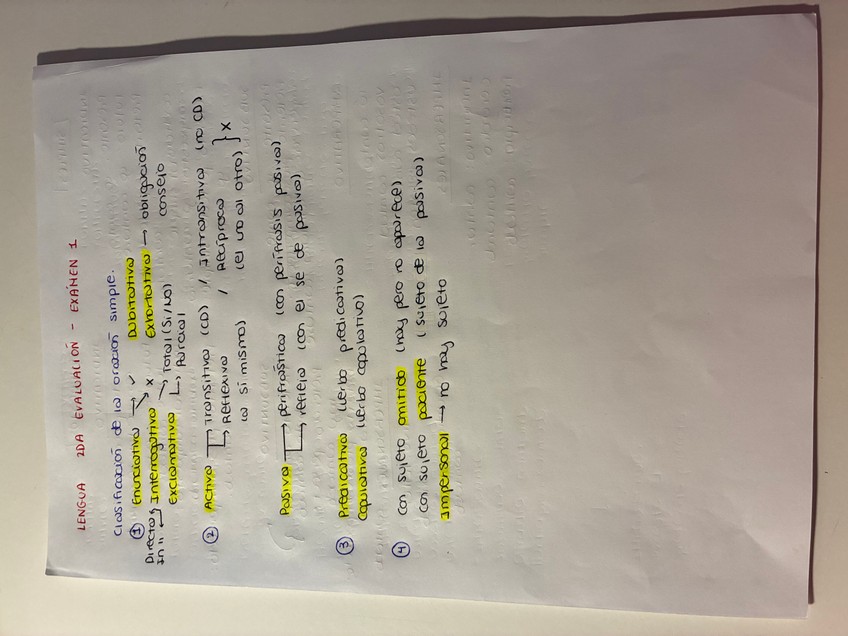 LENGUA 2DA EVALUACIÓN - EXÁMEN 1
Clasificación de la oración simple.
① Enunciativa → ✓ Dubitativa
↘ x Exhortativa → obligación
consejo
Directa Interrogativa → Total (Si/No)
In 11 ↳ Parcial
Exclamativa
② Activa → Transitiva (CD) / Intransitiva (no CD)
↳ Reflexiva / Recíproca } x
(a sí mismo) (el uno al otro)
Pasiva → perifrástica (con perífrasis pasiva)
↳ refleja (con el se de pasiva)
③ Predicativa (verbo predicativo)
Copulativa (verbo copulativo)
④ con sujeto omitido (hay pero no aparece)
con sujeto paciente (sujeto de la pasiva)
Impersonal → no hay sujeto